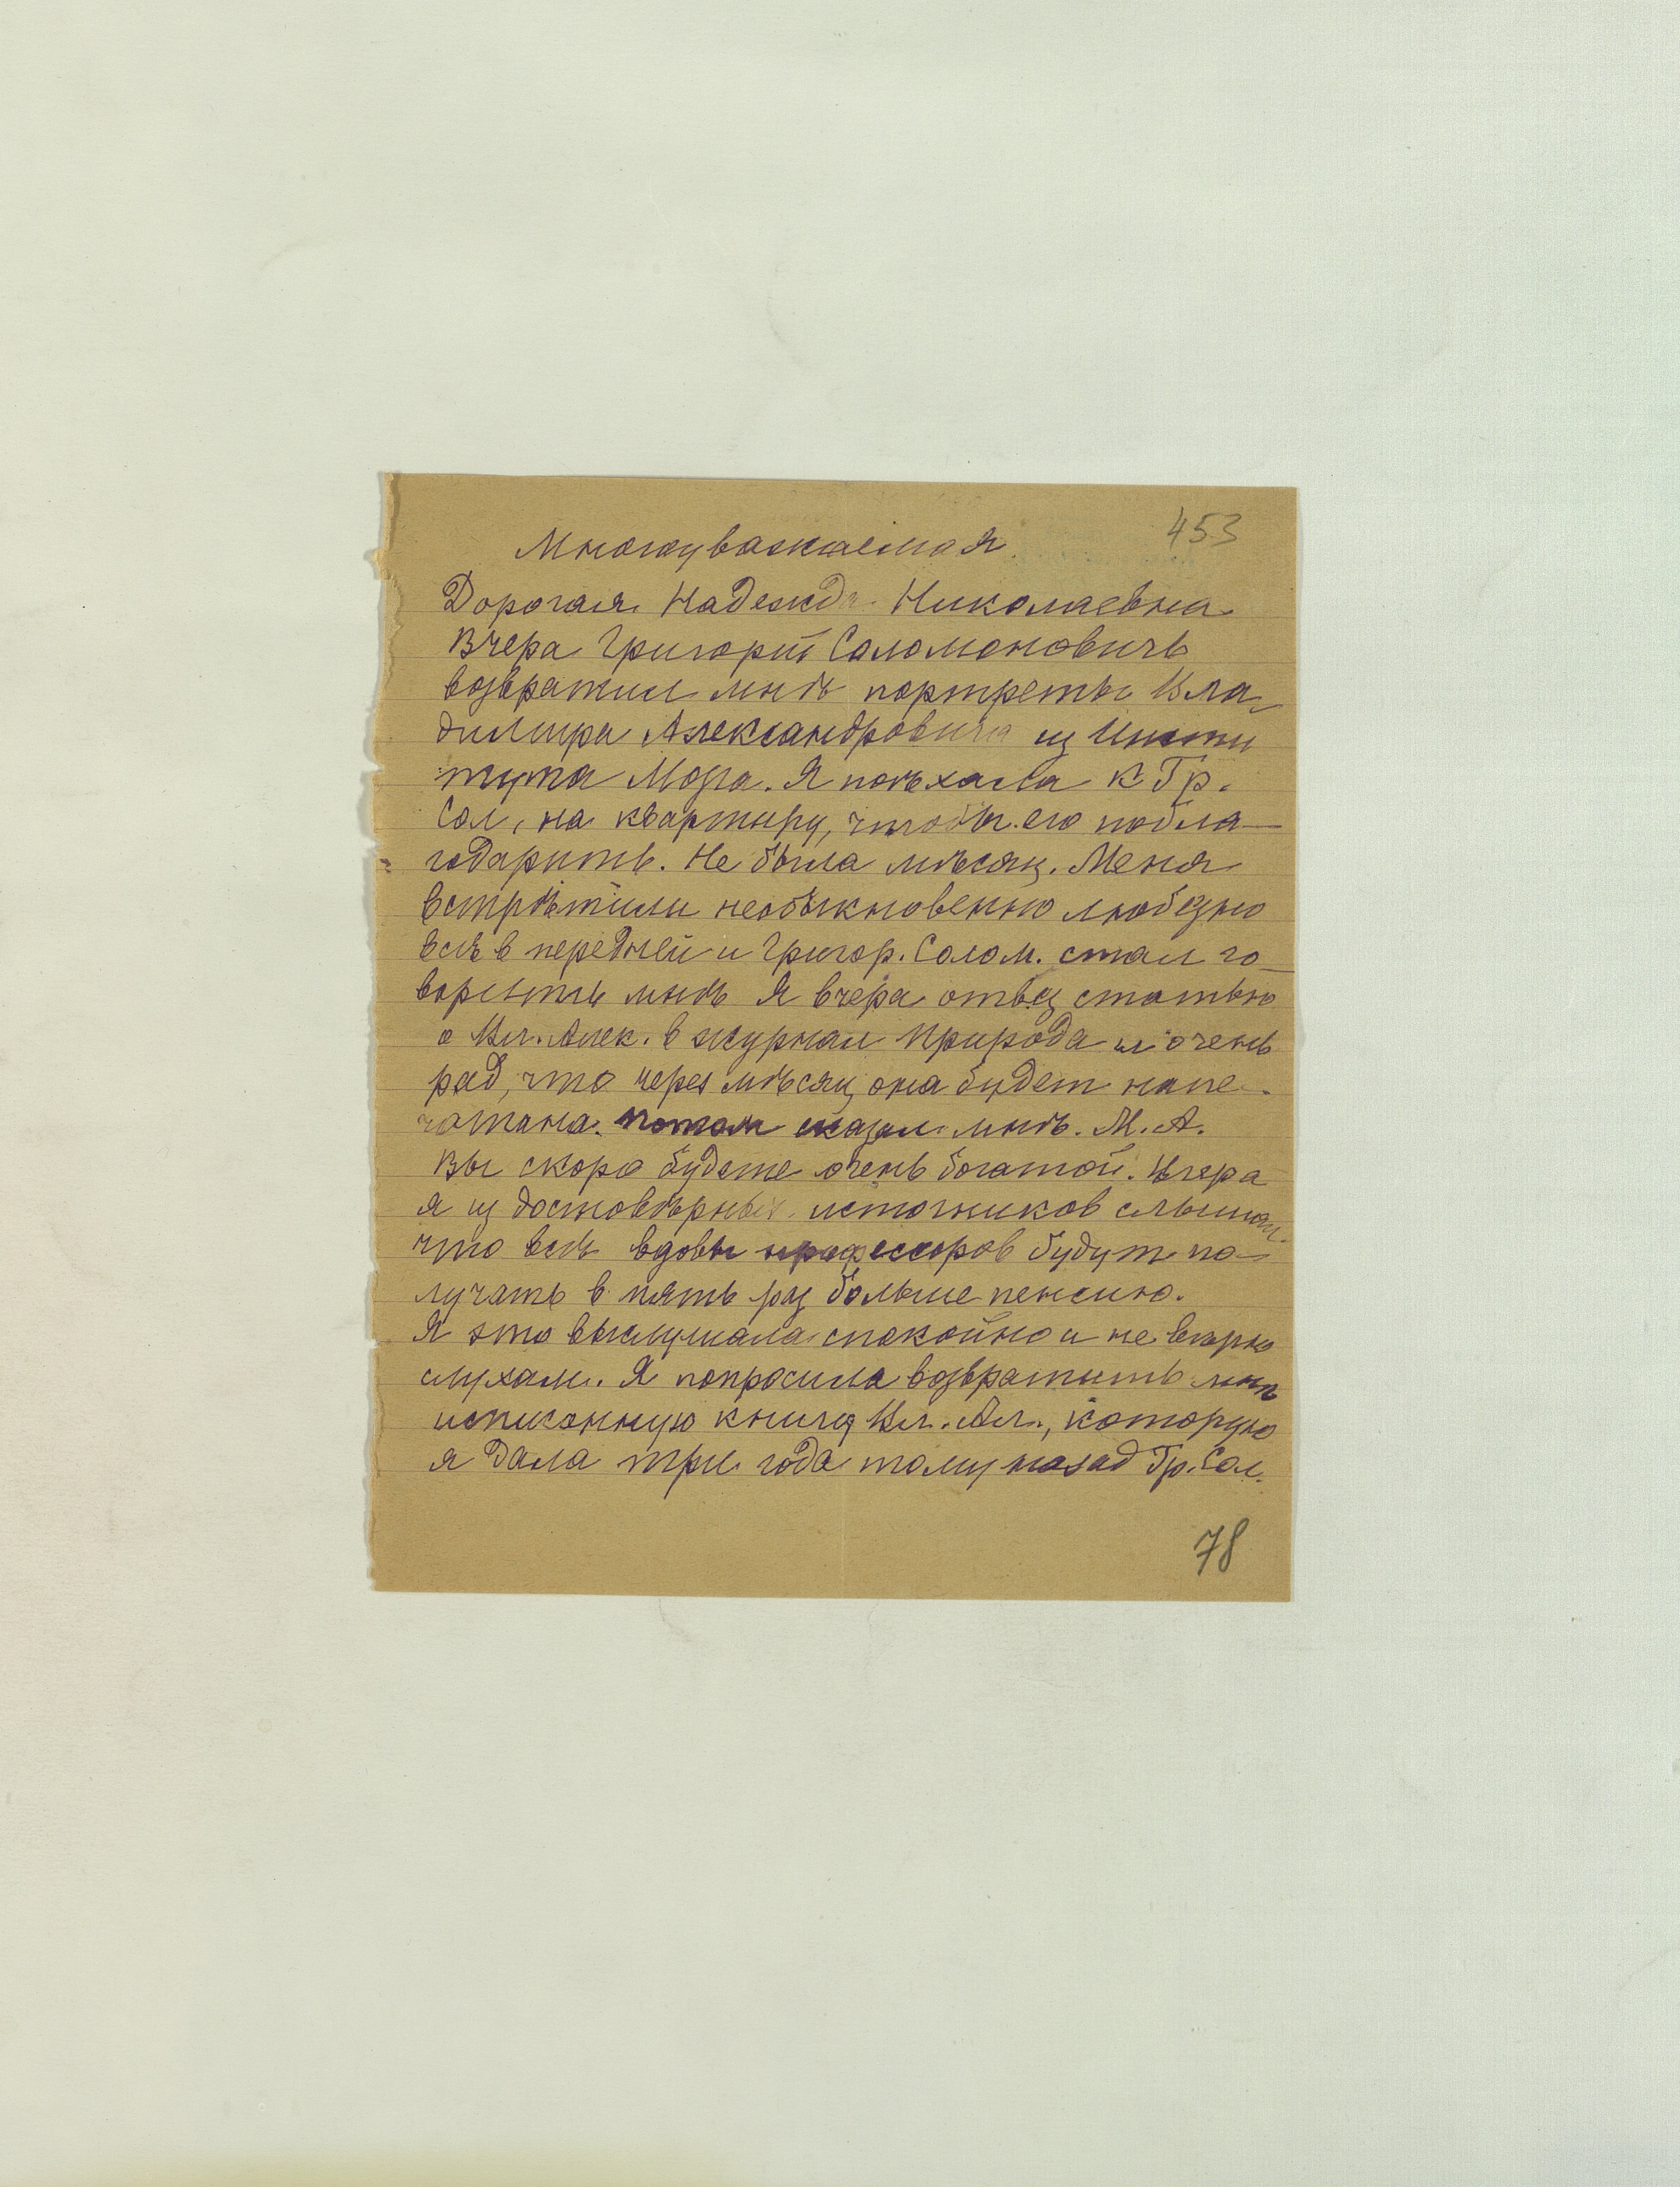 453
Многоуважаемая
Дорогая Надежда Николаевна
Вчера Григорий Саломоновичь
возвратил мнѣ портреты Вла-
димира Александровича из Инсти
тута Мозга. Я поѣхала к Гр.
Сол. на квартиру, чтобы его побла-
годарить. Не была мѣсяц. Меня
встрѣтили необыкновенно любезно
всѣ в передней и Григор. Солом. стал го-
ворить мнѣ Я вчера отвез статью
о Вл. Алек. в журнал Природа и очень
рад, что через мѣсяц она будет напе-
чатана. Потом сказал мнѣ. М. А.
Вы скоро будете очень богатой. Вчера
я из достовѣрных источников слышал
что всѣ вдовы профессоров будут по-
лучать в пять раз больше пенсию.
Я это выслушала спокойно и не вѣрю
слухам. Я попросила возвратить мнѣ
исписанную книгу Вл. Ал., которую
я дала три года тому назад Гр. Сол.
78